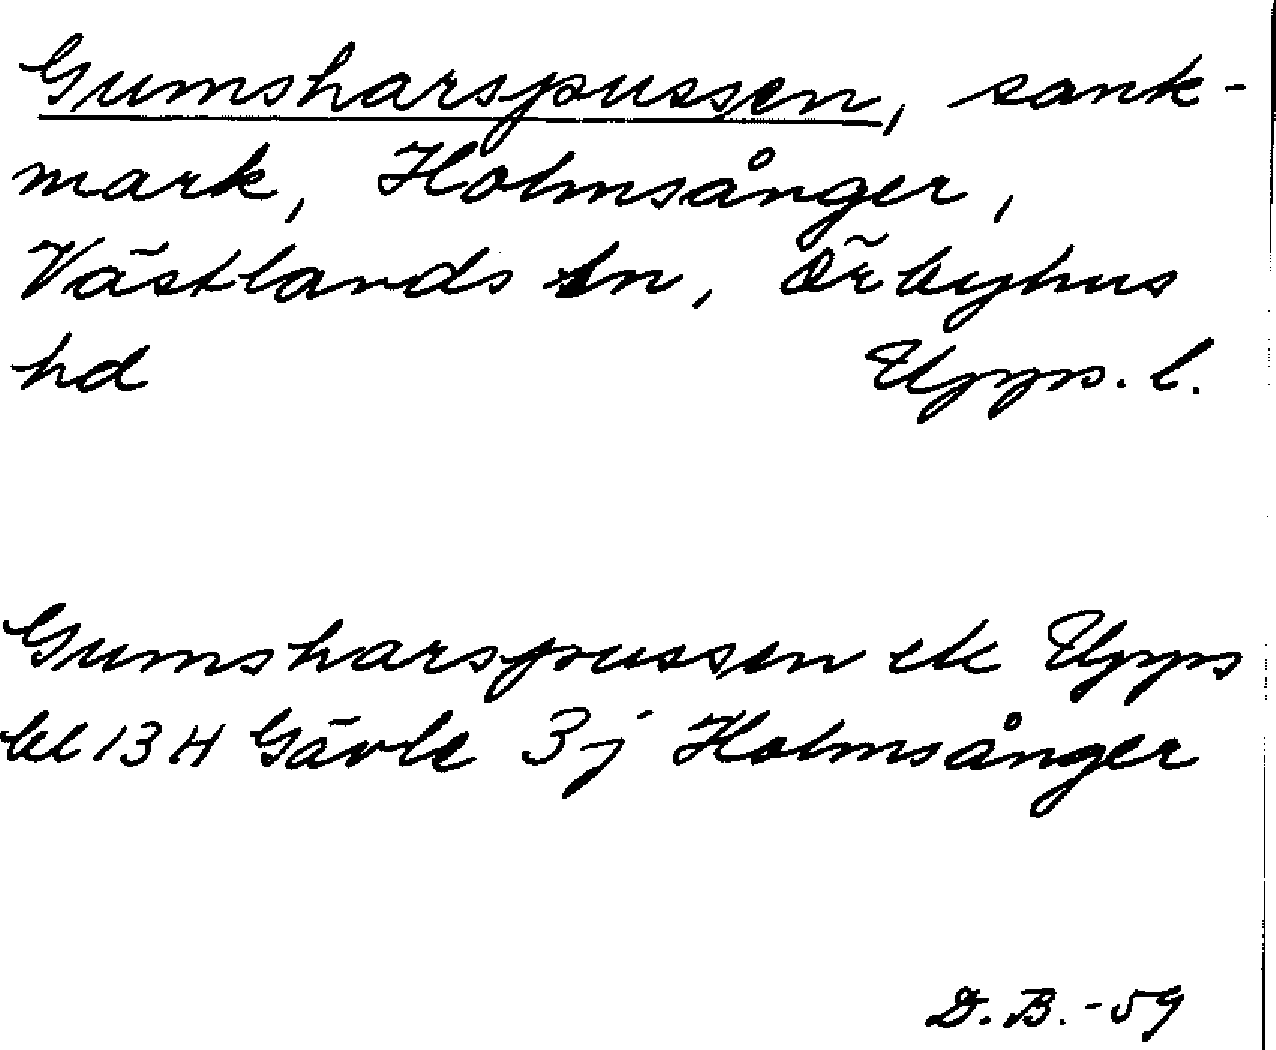 Gumsharspussen, sank-
mark, Holmsånger,
Västlands sn, Örbyhus
hd Upps. l.
Gumsharspussen ek Upps
bl 13 H Gävle 3j Holmsånger
D. B. -59